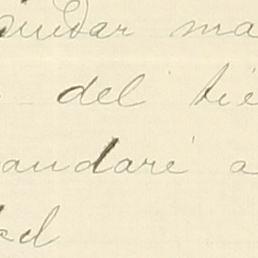 mandar ma
del tie
andaré a
ed